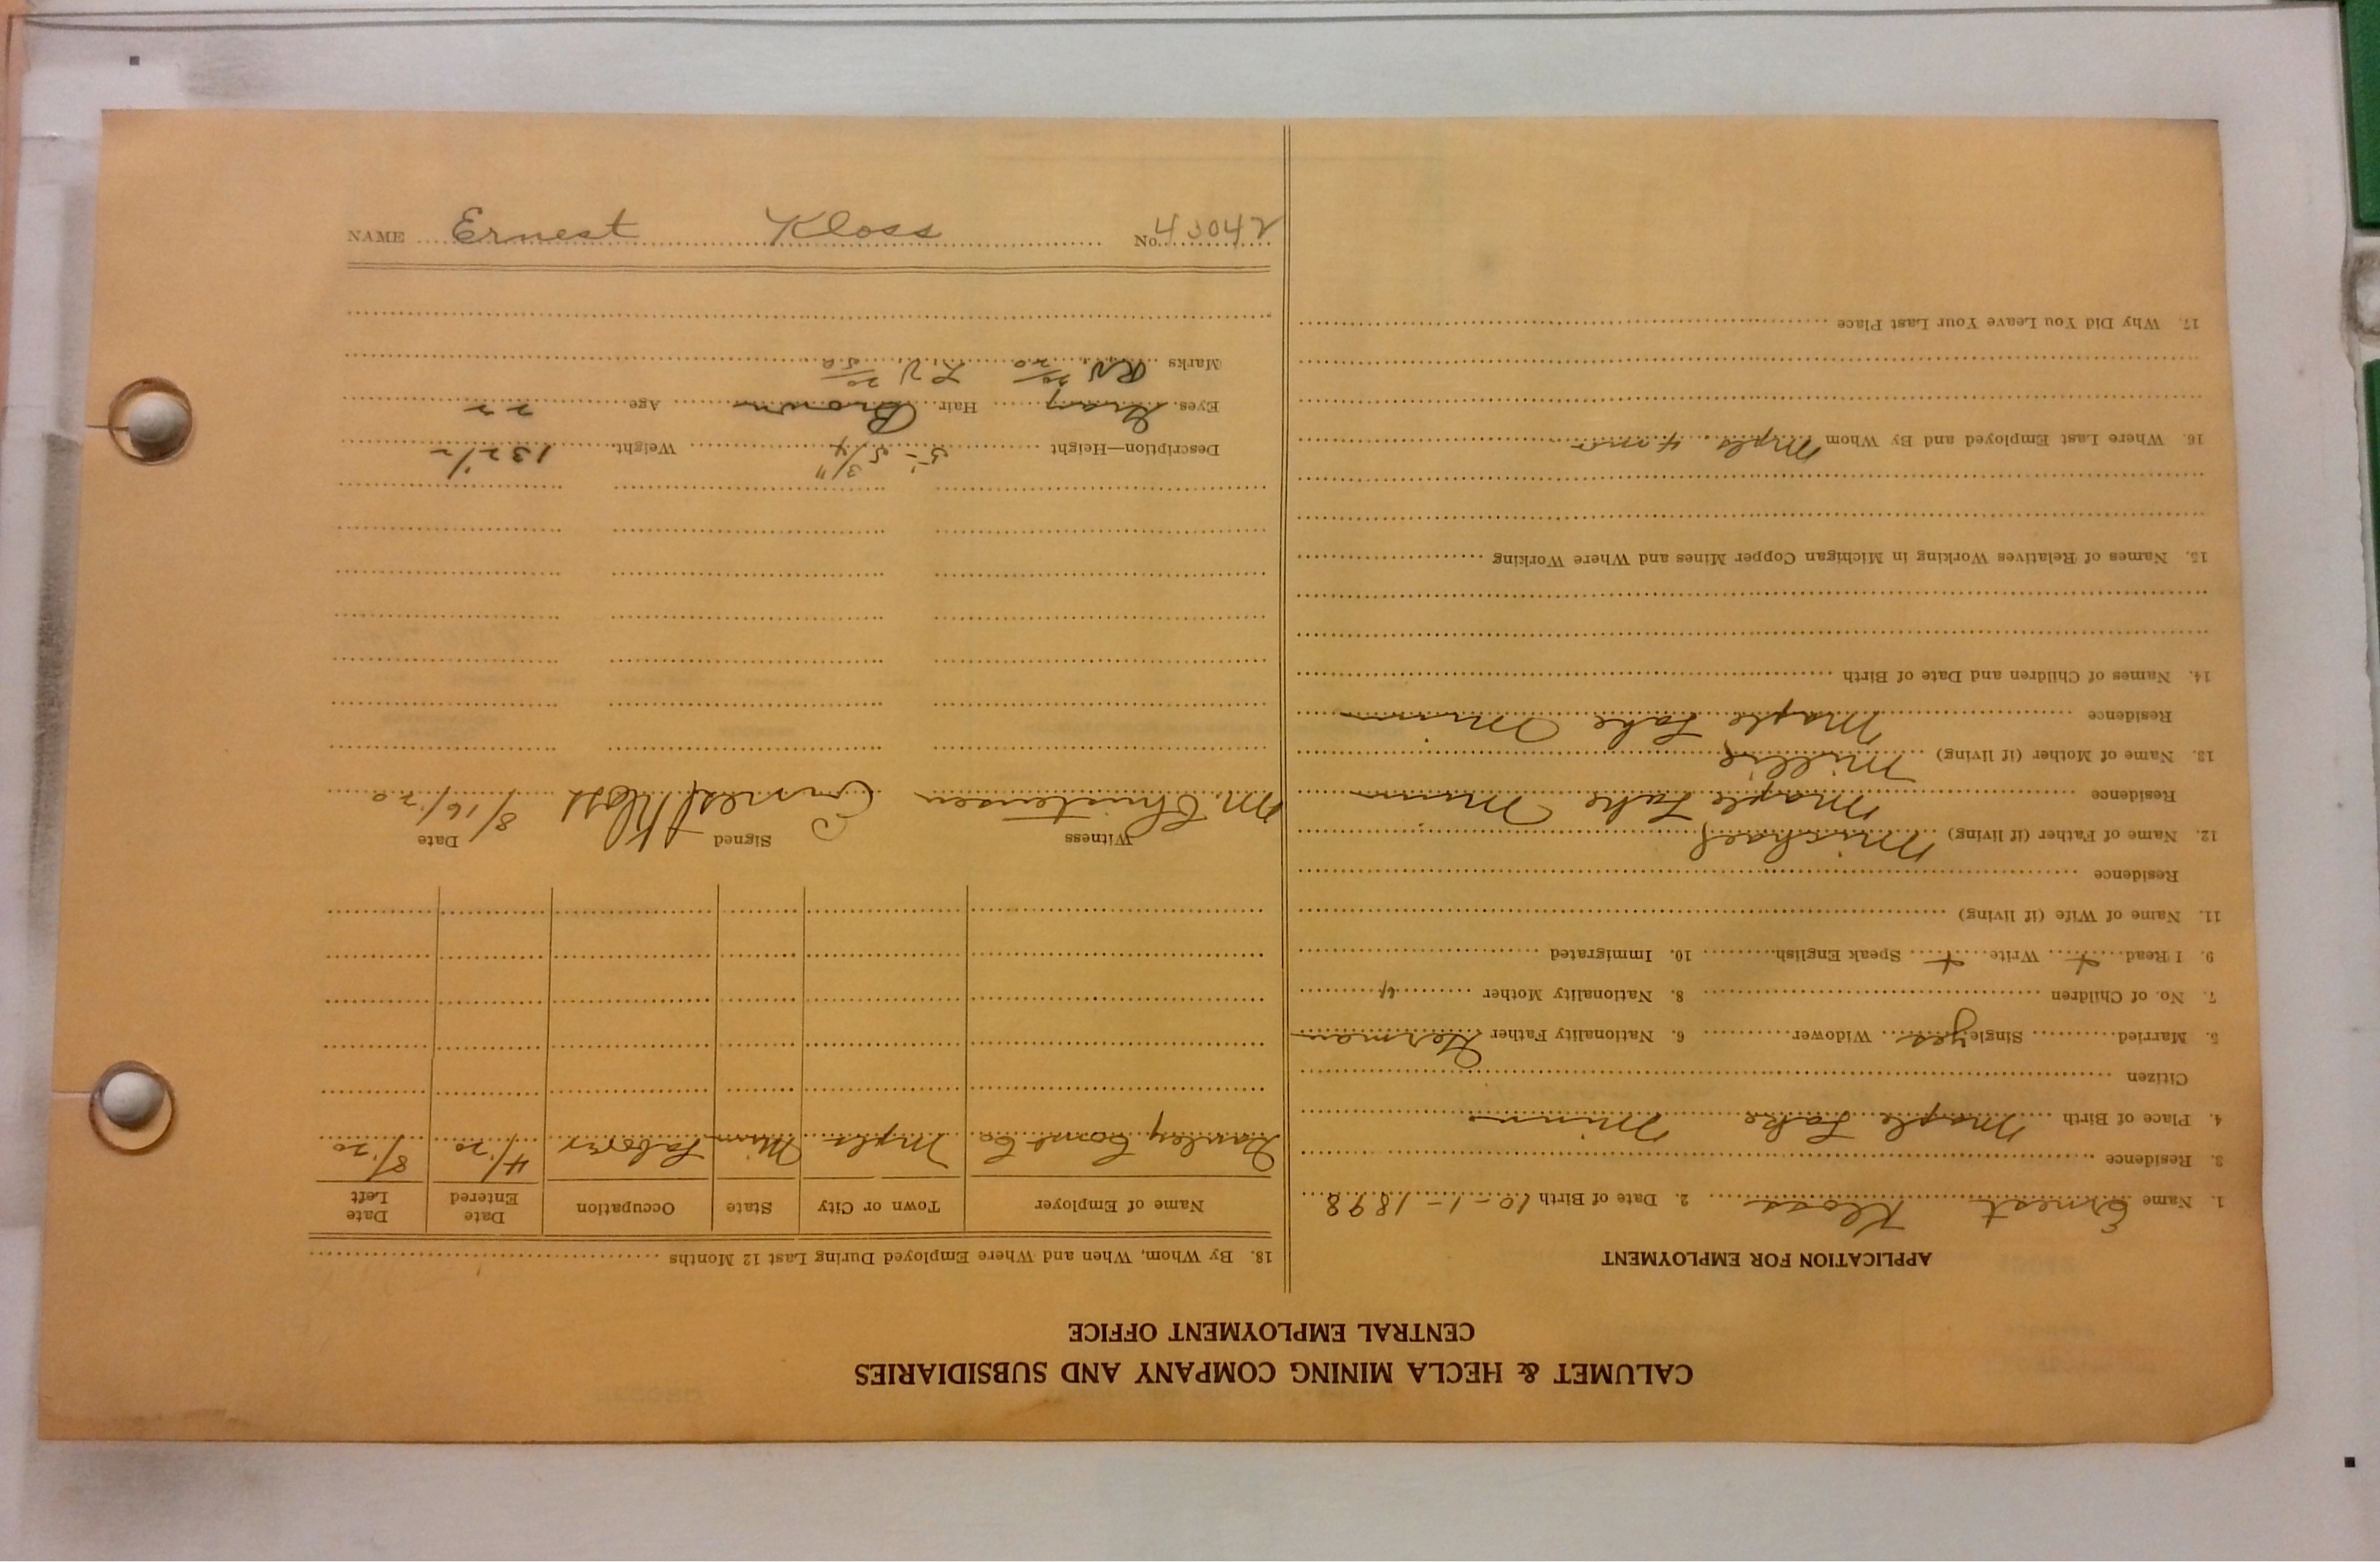 CALUMET & HECLA MINING COMPANY AND SUBSIDIARIES
CENTRAL EMPLOYMENT OFFICE
APPLICATION FOR EMPLOYMENT
1. Name Ernest Kloss 2. Date of Birth 10-1-1898
3. Residence
4. Place of Birth Maple Lake Minn
Citizen
5. Married Single yes Widower 6. Nationality Father German
7. No. of Children 8. Nationality Mother "
9. I Read + Write + Speak English 10. Immigrated
11. Name of Wife (if living)
Residence
12. Name of Father (if living) Michael
Residence Maple Lake Minn
13. Name of Mother (if living) Millie
Residence Maple Lake Minn
14. Names of Children and Date of Birth
15. Names of Relatives Working in Michigan Copper Mines and Where Working
16. Where Last Employed and By Whom Mpls 4 mos
17. Why Did You Leave Your Last Place
18. By Whom, When and Where Employed During Last 12 Months
Name of Employer Town or City State Occupation Date Entered Date Left
Const Co. Mpls Minn Laborer 4/20 8/20
Witness Signed Date
M. Christensen Ernest Kloss 8/16/20
Description—Height 5'-5 3/4" Weight 132 1/2
Eyes Gray Hair Brown Age 22
Marks RV 20/20 L.V. 20/50
NAME Ernest Kloss No. 43042